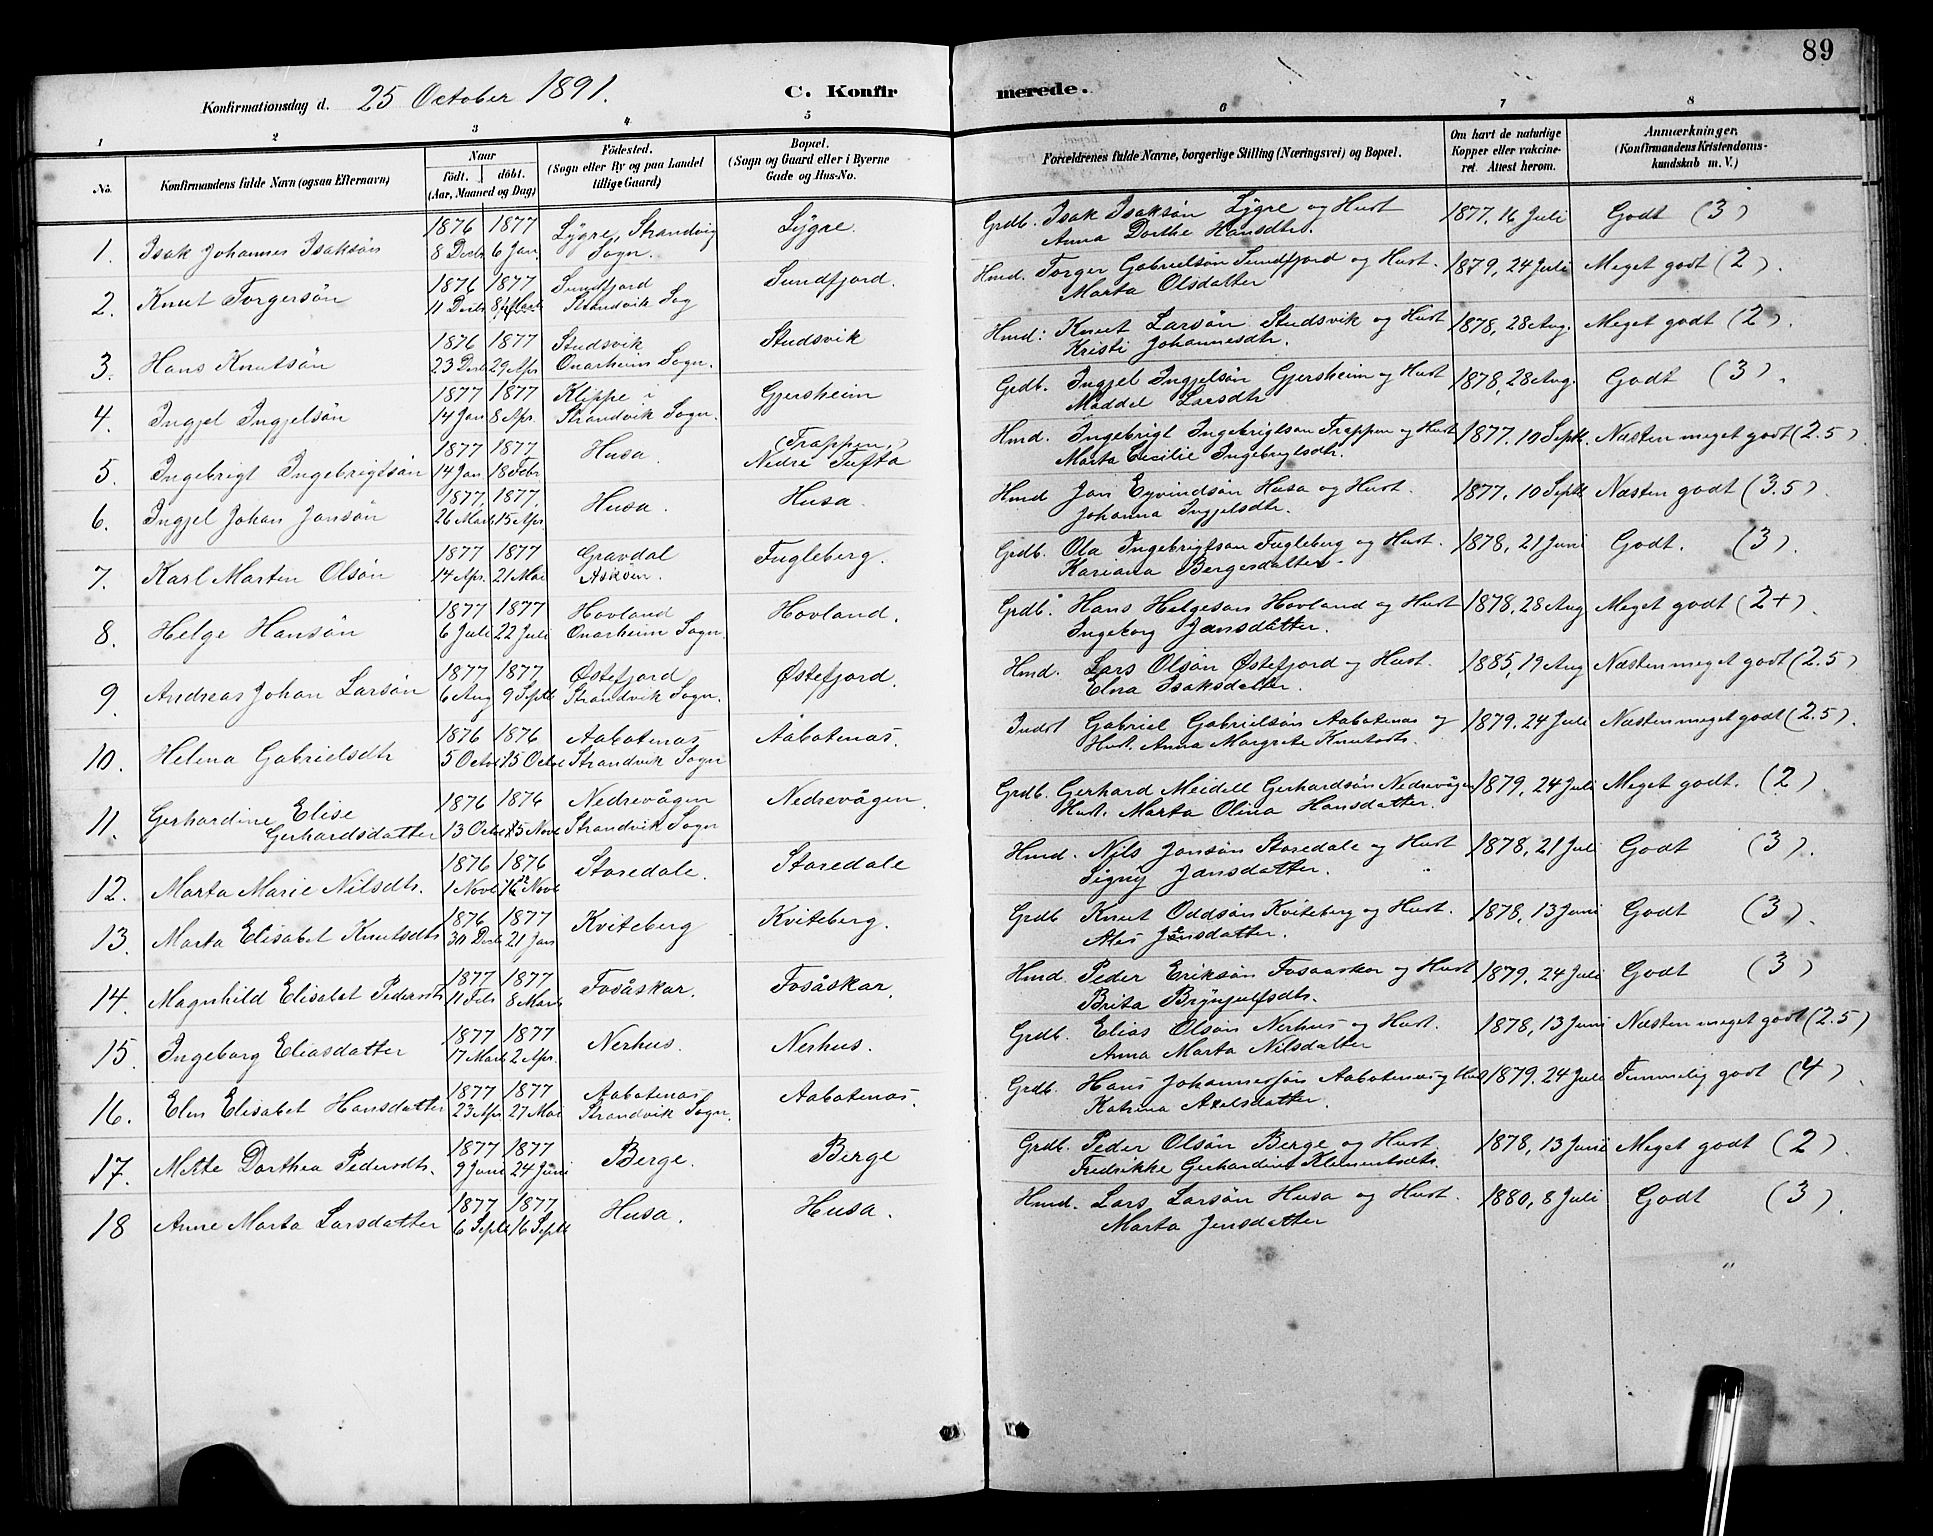 89
Konfirmationsdag d. 25 October 1891. C. Konfirmerede.
1 2 3 4 5 6 7 8
No. Konfirmandens fulde Navn (ogsaa Efternavn) Naar Født. døbt. (Aar, Maaned og Dag) Fødested. (Sogn eller By og paa Landet tillige Gaard) Bopæl. (Sogn og Gaard eller i Byerne Gade og Hus-No. Forældrenes fulde Navne, borgerlige Stilling (Næringsvei) og Bopæl. Om havt de naturlige Kopper eller vakcineret. Attest herom. Anmærkninger. (Konfirmandens Kristendomskundskab m. V.)
1. Isak Johannes Isaksøn 1876 8 Decbr 1877 6 Jan. Lygre, Strandvig Sogn. Lygre. Grdb. Isak Isaksøn Lygre og Hust Anna Dorthe Hansdtr. 1877, 16 Juli Godt (3)
2. Knut Torgersøn 1876 11 Decbr 1877 8 Marts Sundfjord Strandvik Sog Sundfjord. Hmd. Torger Gabrielsøn Sundfjord og Hust. Marta Olsdatter 1879, 24 Juli Meget godt (2).
3. Hans Knutsøn 1876 23 Decb 1877 29 Apr Studsvik Onarheim Sogn. Studsvik Hmd: Knut Larsøn Studsvik og Hust Kristi Johannesdtr. 1878, 28 Aug. Meget godt (2).
4. Ingjel Ingjelsøn 1877 14 Jan 1877 8 Apr. Klippe i Strandvik Sogn. Gjersheim Grdb. Ingjel Ingjelsøn Gjersheim og Hust Maddel Larsdtr 1878, 28 Aug. Godt (3).
5. Ingebrigt Ingebrigtsøn 1877 14 Jan 1877 18 Febr Husa. (Trappen) Nedre Tufta Hmd. Ingebrigt Ingebrigtson Trappen og Hust Marta Cecilie Ingebrigtsdtr. 1877. 10 Septb. Næsten meget godt (2.5).
6. Ingjel Johan Jonsøn 1877, 26 Marts 1877, 15 Apr Husa. Husa. Hmd Jon Eyvindsøn Husa og Hust. Johanna Ingjelsdtr. 1877, 10 Septb Næsten godt (3.5).
7. Karl Marten Olsøn 1877 14 Apr. 1877 21 Mai Gravdal Askøen. Fugleberg. Grdb. Ola Ingebrigtson Fugleberg og Hust. Kariana Bergesdatter. 1878, 21 Juni Godt. (3).
8. Helge Hansøn 1877 6 Juli 1877 22 Juli Hovland Onarheim Sogn. Hovland. Grdb. Hans Helgeson Hovland og Hust Ingeborg Jonsdatter. 1878, 28 Aug Meget godt (2+).
9. Andreas Johan Larsøn 1877 6 Aug 1877 9 Septb Østefjord Strandvik Sogn. Østefjord. Hmd. Lars Olsøn Østefjord og Hust. Elna Isaksdatter. 1885, 19 Aug Næsten meget godt (2.5)
10. Helena Gabrielsdtr 1876 5 Octbr 1876 15 Octbr Aabotenas Strandvik Sogn Aabotenas. Indst Gabriel Gabrielsøn Aabotenas og Hust. Anna Margrete Knutsdtr. 1879, 24 Juli Næsten meget godt (2.5).
11. Gerhardine Elise Gerhardsdatter 1876 13 Octb 1876 15 Novb Nedrevågen Strandvik Sogn Nedrevågen. Grdb. Gerhard Meidell Gerhardsøn Nedrevågen Hust. Marta Olina Hansdatter. 1879, 24 Juli Meget godt. (2).
12. Marta Marie Nilsdtr. 1876 1 Novb 1876 12 Novb Storedale. Storedale Hmd. Nils Jonsøn Storedale og Hust Signy Jonsdatter. 1878, 21 Juli Godt (3).
13. Marta Elisabet Knutsdtr 1876 30 Decb 1877 21 Jan Kviteberg Kviteberg. Grdb Knut Oddsøn Kviteberg og Hust. Ales Jensdatter. 1878, 13 Juni Godt (3).
14. Magnhild Elisabet Pedersdtr 1877 11 Feb 1877 8 Marts Fosåskar. Fosåskar. Hmd. Peder Eriksøn Fosaaskar og Hust Brita Brynjulfsdtr. 1879, 24 Juli Godt (3)
15. Ingeborg Eliasdatter 1877 17 Marts 1877 2 Apr. Nerhus. Nerhus. Grdb. Elias Olsøn Nerhus og Hust. Anna Marta Nilsdatter 1878, 13 Juni Næsten meget godt (2.5)
16. Elen Elisabet Hansdatter 1877 23 Apr. 1877 27 Mai Aabotenas Strandvik Sogn. Aabotenas. Grdb. Hans Johannessøn Aabotenas og Hust Katrina Axelsdatter. 1879, 24 Juli Temmelig godt (4).
17. Mette Dorthea Pedersdtr. 1877 9 Juni 1877 24 Juni Berge. Berge Grdb. Peder Olsøn Berge og Hust Fredrikke Gerhardine Klementsdtr. 1878, 13 Juni Meget godt (2).
18 Anne Marta Larsdatter 1877 6 Septb 1877 16 Septb Husa. Husa. Hmd. Lars Larsøn Husa og Hust. Marta Jensdatter 1880, 8 Juli Godt (3).